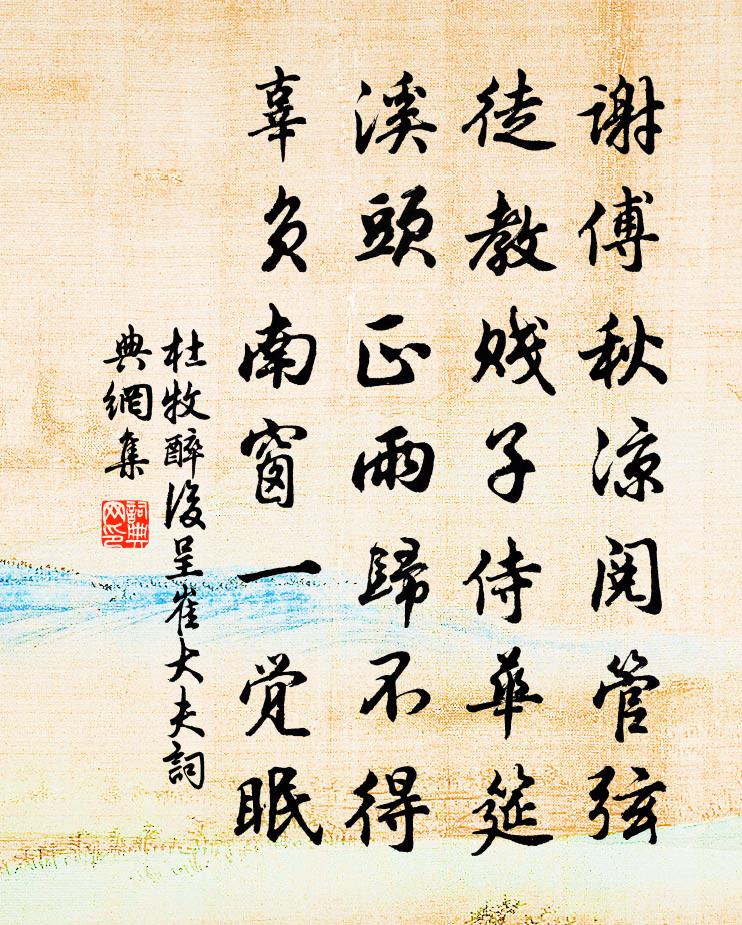 谢傅秋凉阅管弦
徒教贱子侍華筵
溪頭正雨歸不得
辜负南窗一觉眠
杜牧醉後呈崔大夫詞
典網集
詞典
网印